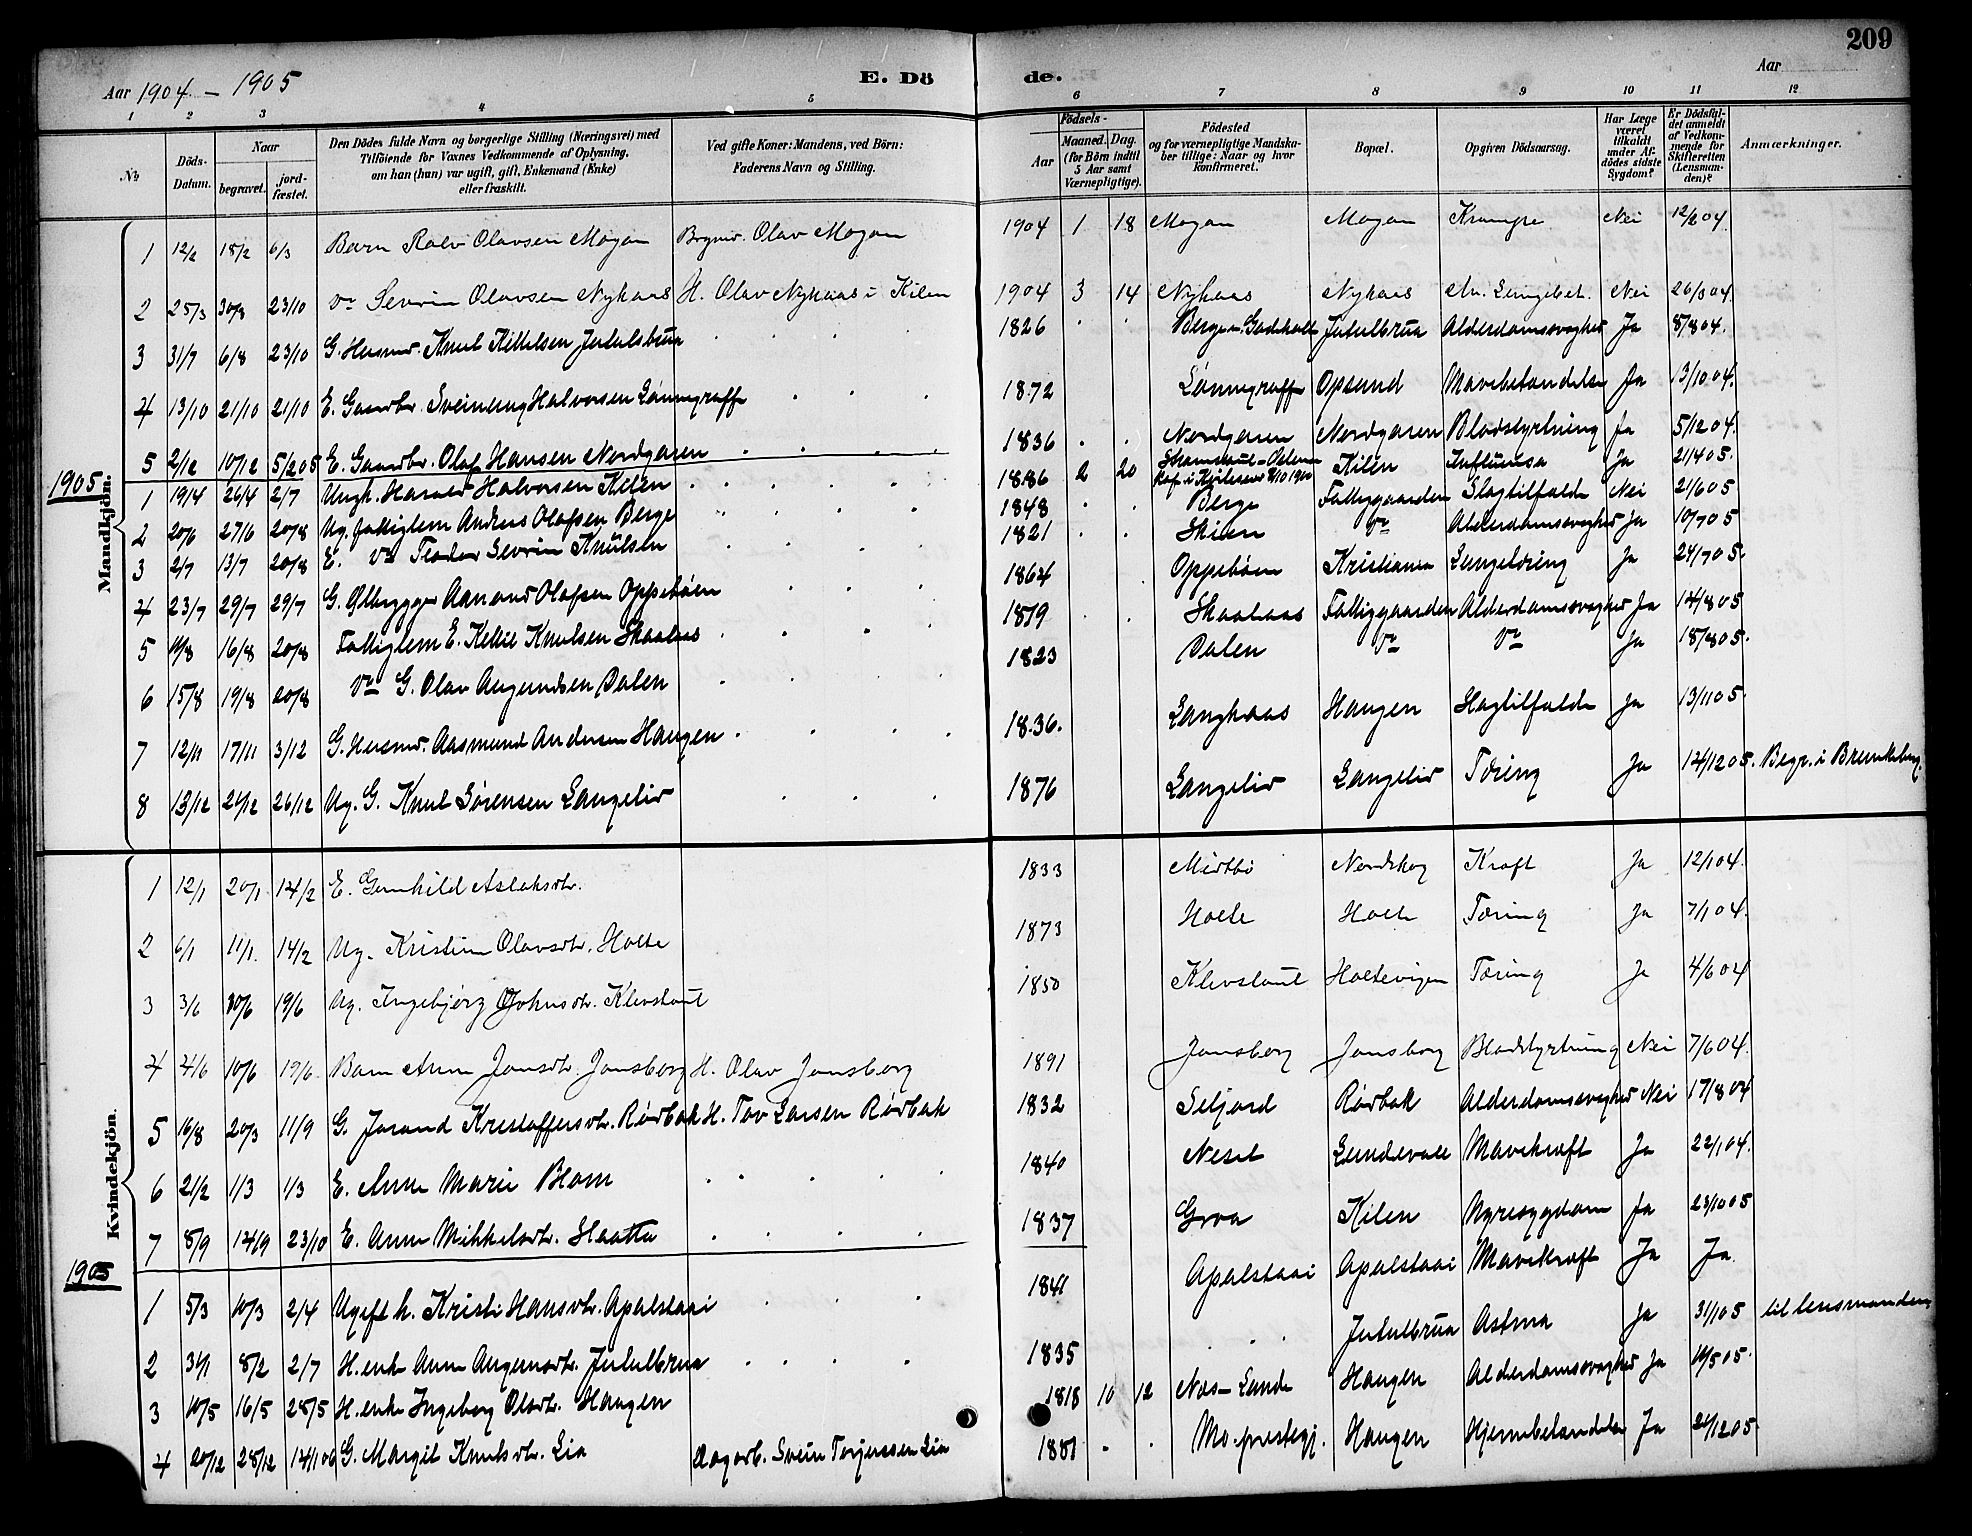 209
Aar 1904 - 1905
E. Dö de.
Aar
1 2 3 4 5 6 7 8 9 10 11 12
No
Döds-Datum.
Naar
begravet.
jord-fæstet.
Den Dödes fulde Navn og borgerlige Stilling (Næringsvei) med Tilföiende for Voxnes Vedkommende af Oplysning, om han (hun) var ugift, gift, Enkemand (Enke) eller fraskilt.
Ved gifte Koner: Mandens, ved Börn: Faderens Navn og Stilling.
Födsels-
Aar
Maaned. Dag. (for Börn indtil 5 Aar samt Værnepligtige).
Födested og for værnepligtige Mandskaber tillige: Naar og hvor konfirmeret.
Bopæl.
Opgiven Dödsaarsag.
Har Læge været tilkaldt under Afdödes sidste Sygdom?
Er Dödsfaldet anmeldt af Vedkommende for Skifteretten (Lensmanden)?
Anmærkninger.
Mandkjön.
1 12/2 18/2 6/3 Barn Rolv Olavsen Mogan Brgmd. Olav Mogan 1904 1 18 Mogan Mogan Krampe Nei 12/2 04.
2 25/3 30/3 23/10 Do Sevrin Olavsen Nyhaas H. Olav Nyhaas i Kilen 1904 3 14 Nyhaas Nyhaas Nei 26/3 04.
3 31/7 6/8 23/10 G. Husmd. Knut Kittelsen Jutulsbrua 1826 Berge - Jutulbrua Alderdomssvaghed Ja 8/8 04.
4 13/10 21/10 21/10 E. Gaardbr. Sveinung Halvorsen Lønnegraff 1872 Lønnegraff Opsund Mavebetændelse Ja 13/10 04.
5 2/12 10/12 5/2 05 E. Gaardbr. Olaf Hansen Nordgaren 1836 Nordgaren Nordgaren Blodstyrtning Ja 5/12 04.
1905
1 19/4 26/4 2/7 Ungk. Halvorsen Kilen 1886 2 20 Kilen Influensa Ja 21/4 05.
2 20/6 27/6 20/8 Ug. fattiglem Anders Olafsen Berge 1848 Berge Fattiggaarden Slagtilfælde Nei 21/6 05
3 2/7 13/7 20/8 E. Do Teodor Sevrin Knutsen 1821 Skien Do Alderdomssvaghed Ja 10/7 05
4 23/7 29/7 29/7 G. Ølbrygger Aanund Olafsen Oppebøen 1864 Oppebøen Kristiania Lungetæring Ja 24/7 05.
5 11/8 16/8 20/8 Fattiglem E. Kittil Knutsen Skaahaas 1819 Skaahaas Fattiggaarden Alderdomssvaghed Ja 14/8 05
6 15/8 19/8 20/8 Do G. Olav Augundsen Dalen 1823 Dalen Do Do Ja 18/8 05.
7 12/11 17/11 3/12 G. Husmd. Aasmund Andersen Haugen 1836. Langhaas Haugen Slagtilfælde Ja 13/11 05.
8 13/12 21/12 26/12 Ug. G. Knut Sørensen Langelid 1876 Langelid Langelid Tæring Ja 14/12 05. Begr. i Brunkeberg.
Kvindekjön.
1 12/1 20/1 14/2 E. Gunhild Aslaksdtr. 1833 Midtbö Nordskog Kræft Ja 12/1 04.
2 6/1 11/1. 14/2 Ug. Kristine Olavsdtr. Holte 1873 Holte Holte Tæring Ja 7/1 04.
3 3/6 10/6 19/6 Ug. Ingebjörg Johnsdtr. Klevstaul 1850 Klevstaul Holtevigen Tæring Ja 4/6 04
4 4/6 10/6 19/6 Barn Anne Jonsdtr. Jonsborg H. Olav Jonsborg 1891 Jonsborg Jonsborg Blodstyrtning Nei 7/6 04.
5 16/8 20/3 11/9 G. Jorand Kristoffersdtr. Rørbak H. Tov Larsen Rørbak 1832 Seljord Rørbak Alderdomssvaghed Nei 17/8 04
6 21/2 1/3 1/3 E. Anne Marie Blom 1840 Neset Lundevall Mavekræft Ja 22/1 04.
7 8/9 14/9 23/10 E. Anne Mikkelsdtr. Haatta 1837 Groa Kilen Nyresygdom Ja 23/10 05
1905
1 5/3 10/3 2/4 Ugift k. Kristi Hansdtr. Apalstaai 1841 Apalstaai Apalstaai Mavekræft Ja Ja
2 31/1 8/2 2/7 H. enk. Anne Augunsdtr. Jutulbrua 1835 Jutulbrua Astma Ja 31/1 05 til lensmanden
3 10/5 16/5 28/5 H. enke Ingeborg Olsdtr. Haugen 1818 10 12 Næs - Lunde Haugen Alderdomssvaghed Ja 10/5 05.
4 20/12 28/12 14/1 06 G. Margit Knutsdtr. Lia Dagarb. Svein Torjussen Lia 1881 Mo prestegj. Haugen Hjernebetændelse Ja 21/12 05.